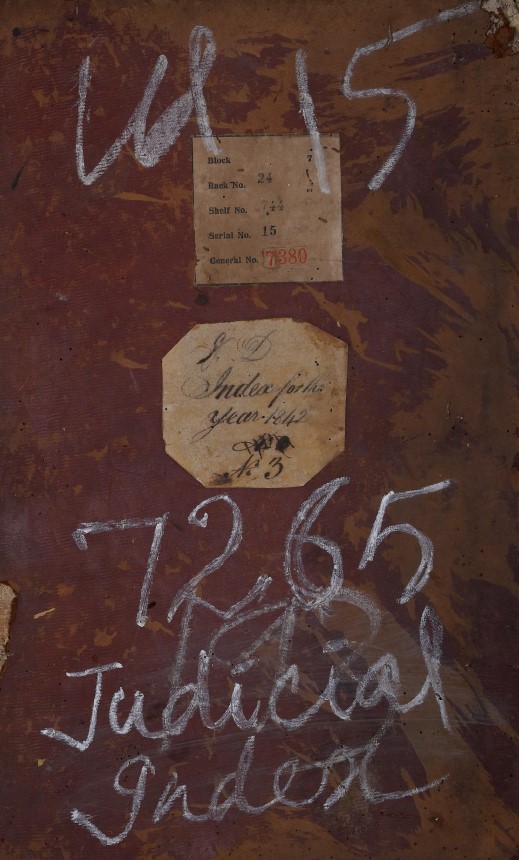 Vol 15
Block 7
Rack No. 24
Shelf No. 744
Serial No. 15
General No. 7380
J. D
Index for the
Year 1842
No. 3
7265
Judicial
Index